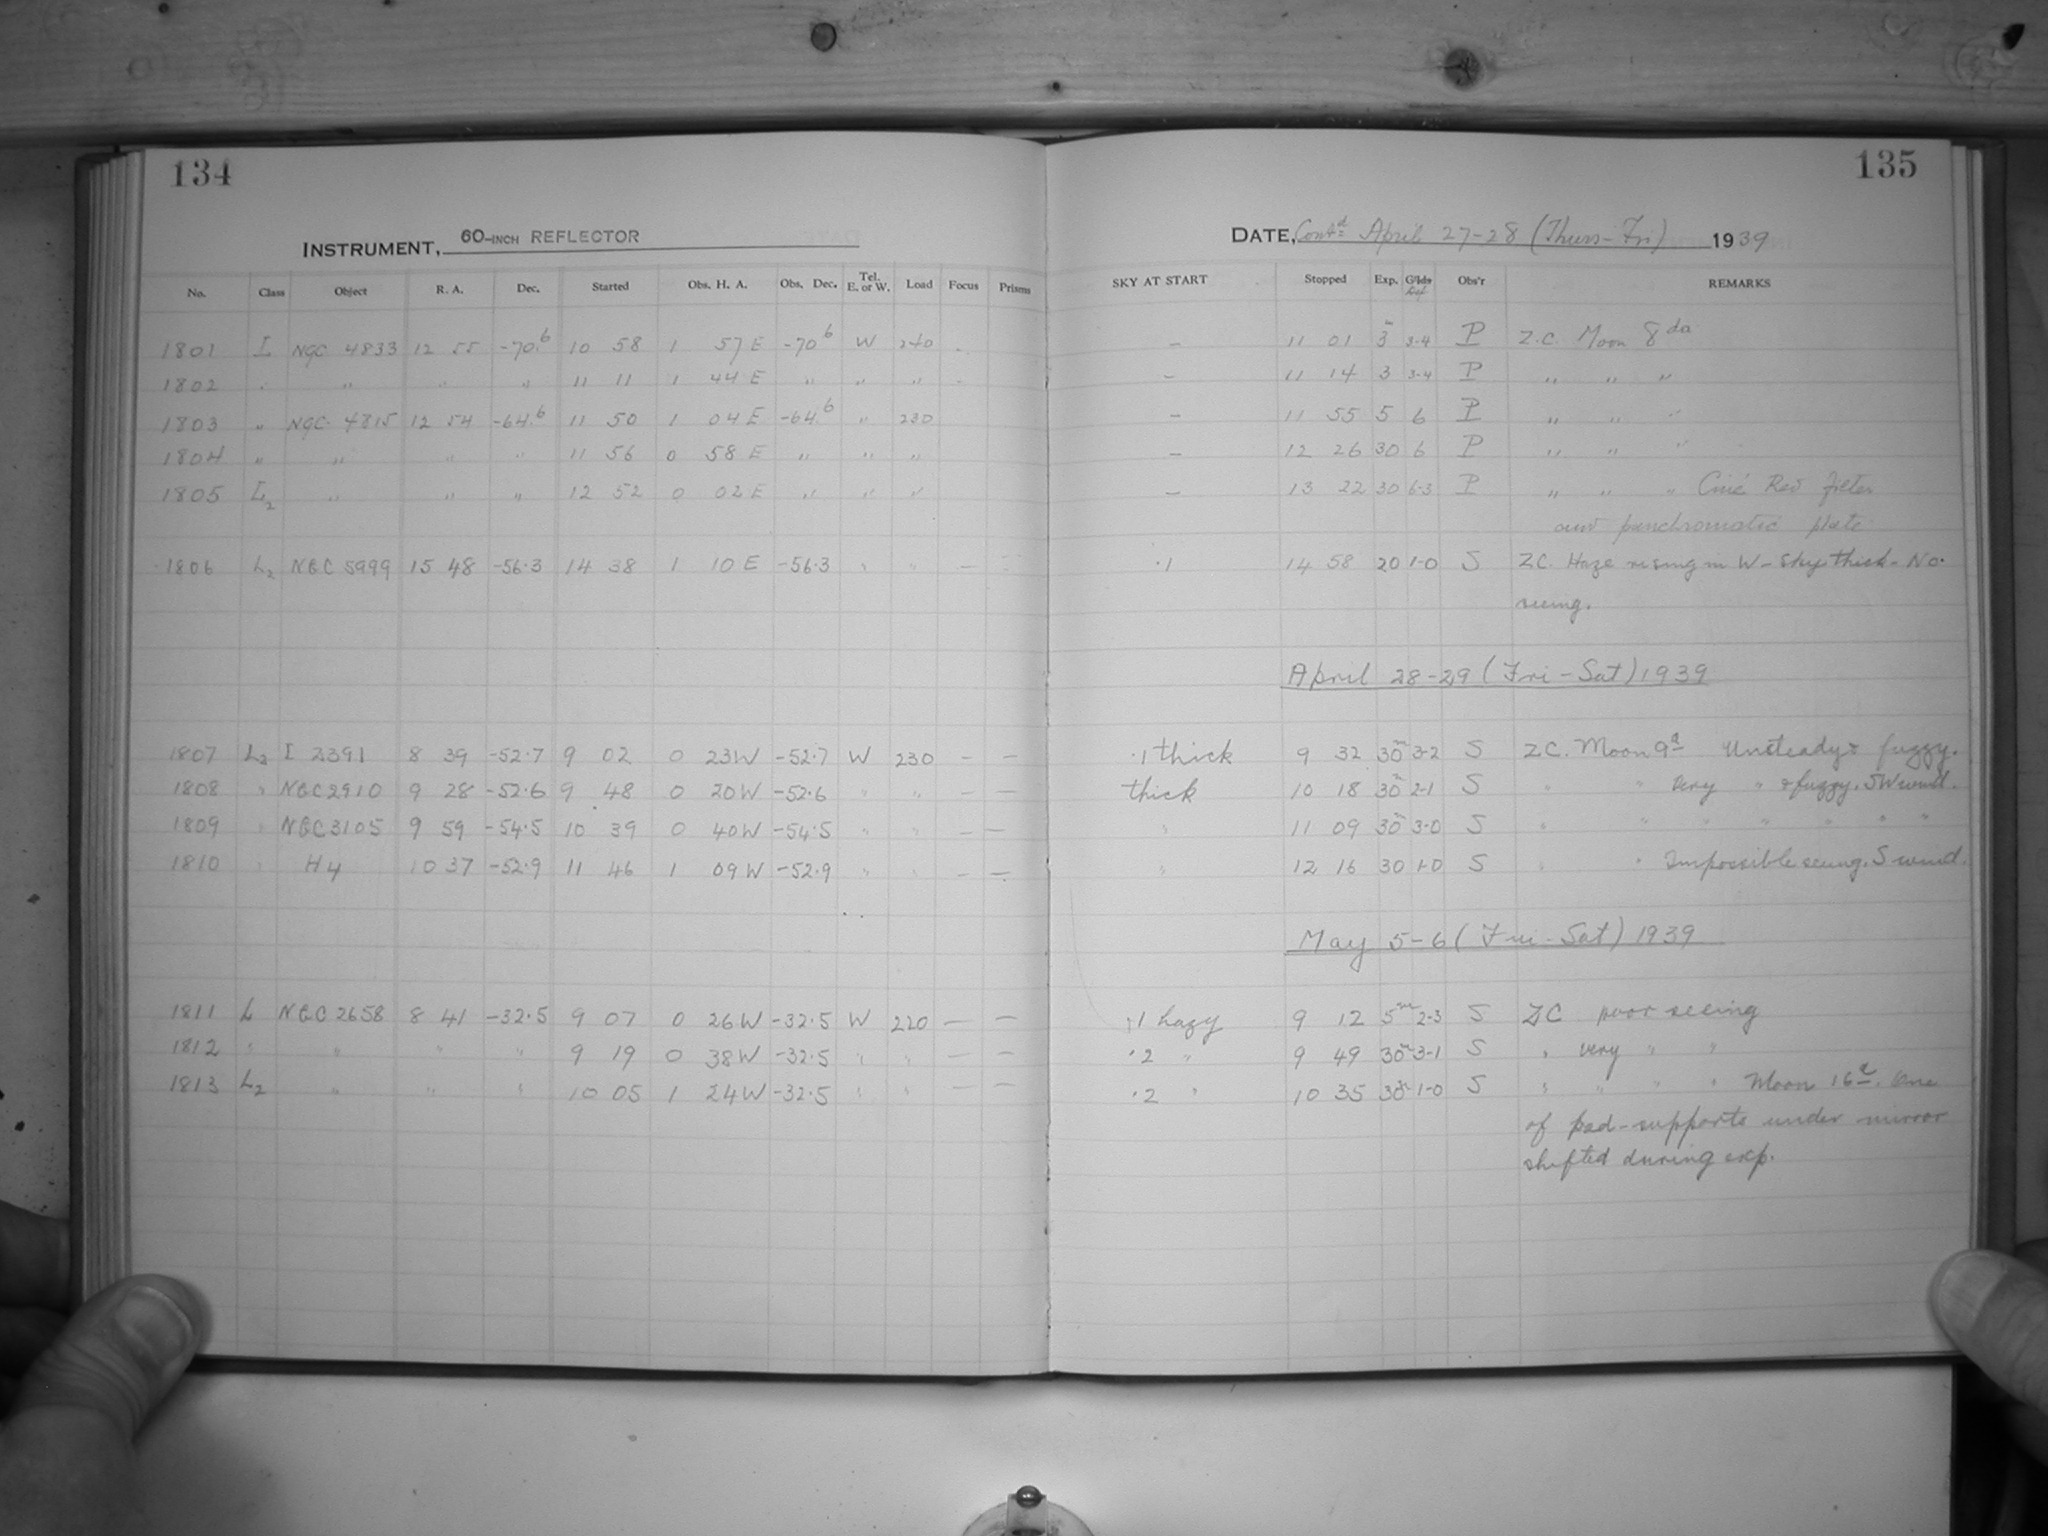 134
135
INSTRUMENT, 60-INCH REFLECTOR
DATE, Contd April 27-28 (Thurs-Fri) 1939
No. Class Object R. A. Dec. Started Obs. H. A. Obs. Dec. Tel. E. or W. Load Focus Prisms SKY AT START Stopped Exp. G'lds Def Obs'r REMARKS
1801 L NGC 4833 12 55 -70.6 10 58 1 57 E -70.6 W 240 - – 11 01 3m 3-4 P Z.C. Moon 8da
1802 " " " " 11 11 1 44 E " " " - – 11 14 3 3-4 P " " "
1803 " NGC 4815 12 54 -64.6 11 50 1 04 E -64.6 " 230 – 11 55 5 6 P " " "
1804 " " " " 11 56 0 58 E " " " – 12 26 30 6 P " " "
1805 L2 " " " 12 52 0 02 E " " " – 13 22 30 6-3 P " " " Ciné Red Filter
and panchromatic plate
1806 L2 NGC 5999 15 48 -56.3 14 38 1 10 E -56.3 " " – – .1 14 58 20 1-0 S Z.C. Haze rising in W - Sky thick - No.
seeing.
April 28-29 (Fri-Sat) 1939
1807 L2 I 2391 8 39 -52.7 9 02 0 23 W -52.7 W 230 – – .1 thick 9 32 30m 3-2 S Z.C. Moon 9d Unsteady & fuzzy.
1808 " NGC 2910 9 28 -52.6 9 48 0 20 W -52.6 " " – – thick 10 18 30m 2-1 S " " Very " & fuzzy. SW wind.
1809 " NGC 3105 9 59 -54.5 10 39 0 40 W -54.5 " " – – " 11 09 30m 3-0 S " " " " " " "
1810 " H 4 10 37 -52.9 11 46 1 09 W -52.9 " " – – " 12 16 30 1-0 S " " Impossible seeing. S wind.
May 5-6 (Fri-Sat) 1939
1811 L NGC 2658 8 41 -32.5 9 07 0 26 W -32.5 W 220 – – .1 hazy 9 12 5m 2-3 S Z.C poor seeing
1812 " " " " 9 19 0 38 W -32.5 " " – – .2 " 9 49 30m 3-1 S " very " "
1813 L2 " " " 10 05 1 24 W -32.5 " " – – .2 " 10 35 30m 1-0 S " " " " Moon 16d. One
of pad-supports under mirror
shifted during exp.